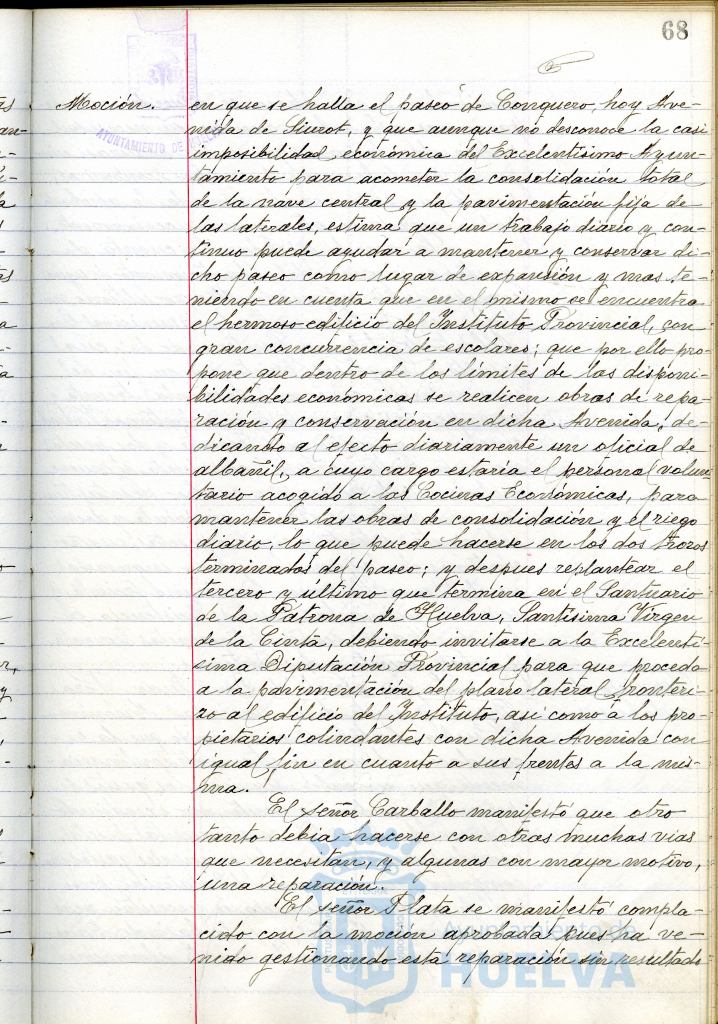 68
Moción. en que se halla el paseo de Conquero, hoy Ave-
nida de Siurot, y que aunque no desconoce la casi
imposibilidad económica del Excelentísimo Ayun-
tamiento para acometer la consolidación total
de la nave central y la pavimentación fija de
las laterales, estima que un trabajo diario y con-
tinuo puede ayudar a mantener y conservar di-
cho paseo como lugar de expansión y mas te-
niendo en cuenta que en el mismo se encuentra
el hermoso edificio del Instituto Provincial, con
gran concurrencia de escolares; que por ello pro-
pone que dentro de los límites de las disponi-
bilidades económicas se realicen obras de repa-
ración y conservación en dicha Avenida, de-
dicando al efecto diariamente un oficial de
albañil, a cuyo cargo estaría el personal volun-
tario acogido a las Cocinas Económicas, para
mantener las obras de consolidación y el riego
diario, lo que puede hacerse en los dos trozos
terminados del paseo; y despues replantear el
tercero y último que termina en el Santuario
de la Patrona de Huelva, Santísima Virgen
de la Cinta, debiendo invitarse a la Excelentí-
sima Diputación Provincial para que proceda
a la pavimentación del plano lateral fronteri-
zo al edificio del Instituto, así como a los pro-
pietarios colindantes con dicha Avenida con
igual fin en cuanto a sus frentes a la mis-
ma.
El señor Carballo manifestó que otro
tanto debia hacerse con otras muchas vias
que necesitan, y algunas con mayor motivo,
una reparación.
El señor Plata se manifestó compla-
cido con la moción aprobada pues ha ve-
nido gestionando esta reparación sin resultado
AYUNTAMIENTO DE
Ayuntamiento de
HUELVA